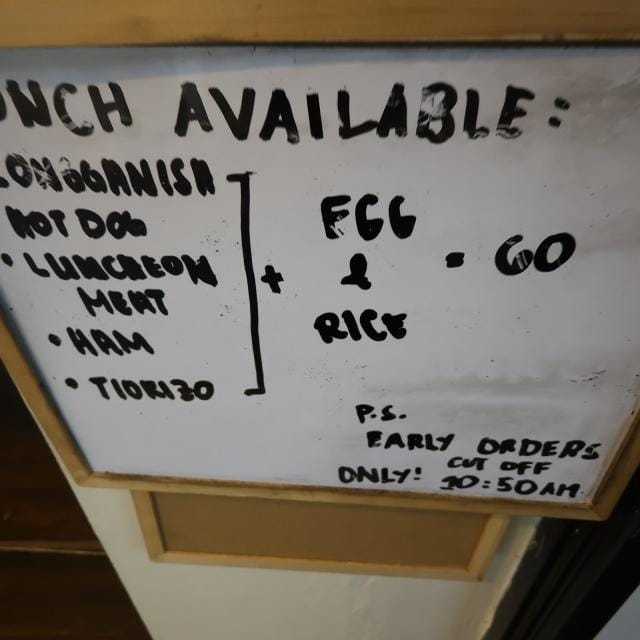 UNCH AVAILABLE:
LONGGANISA
HOT DOG
• LUNCHEON
MEAT
• HAM
• TIORIZO
+
EGG
&
RICE
= 60
P.S.
EARLY ORDERS
ONLY! CUT OFF
10:50AM